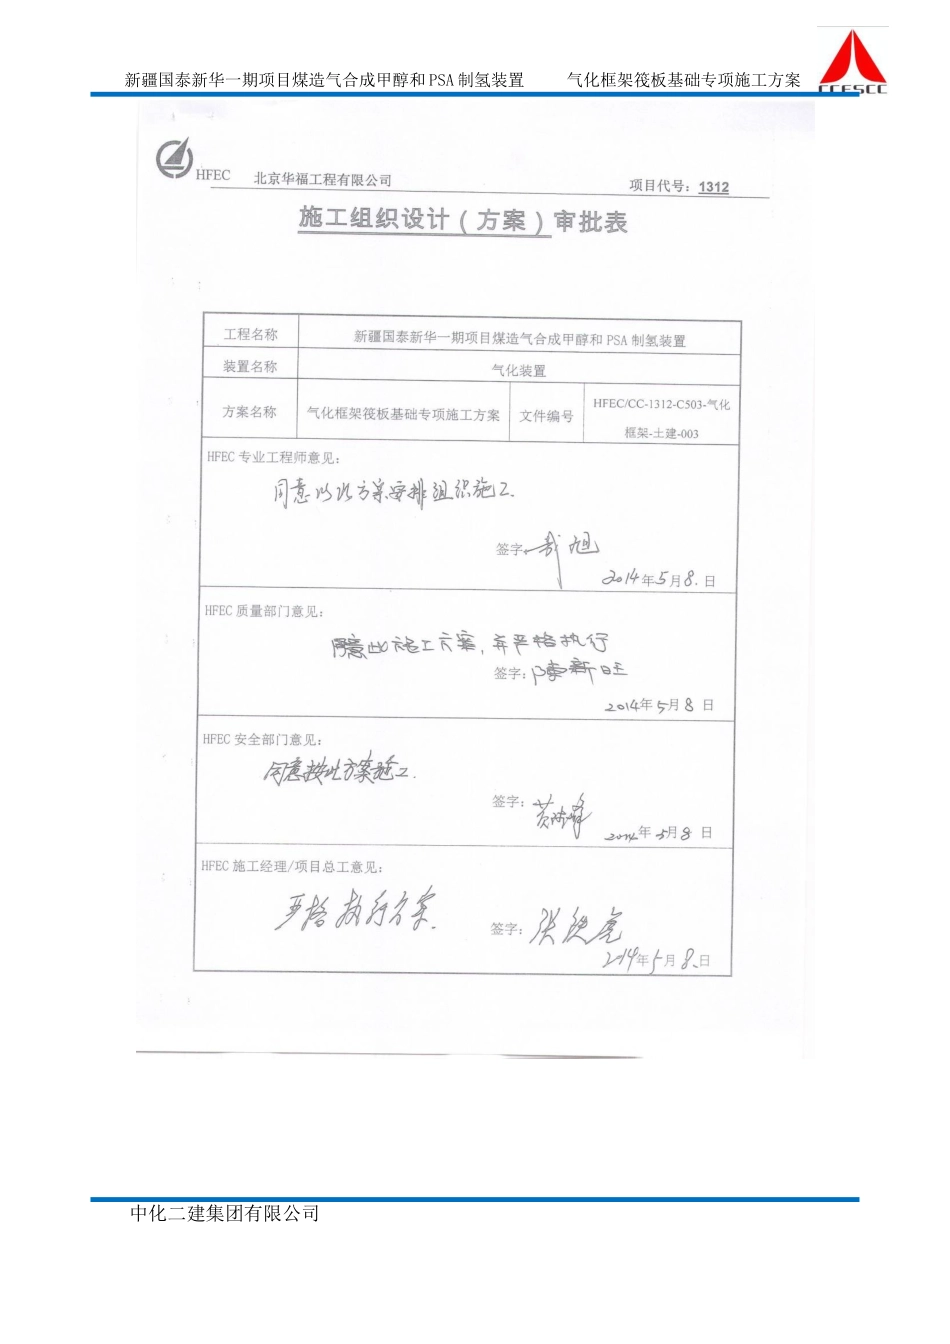 新疆国泰新华一期项目煤造气合成甲醇和PSA制氢装置 气化框架筏板基础专项施工方案
CCESCC
HFEC 北京华福工程有限公司 项目代号：1312
施工组织设计（方案）审批表
工程名称 新疆国泰新华一期项目煤造气合成甲醇和 PSA 制氢装置
装置名称 气化装置
方案名称 气化框架筏板基础专项施工方案 文件编号 HFEC/CC-1312-C503-气化
框架-土建-003
HFEC 专业工程师意见：
同意以此方案安排组织施工.
签字： 旭
2014年5月8.日
HFEC 质量部门意见：
同意此施工方案，并严格执行
签字：陈新旺
2014年5月8日
HFEC 安全部门意见：
同意按此方案施工.
签字：黄
2014年5月8日
HFEC 施工经理/项目总工意见：
严格执行方案.
签字：张
2014年5月8.日
中化二建集团有限公司